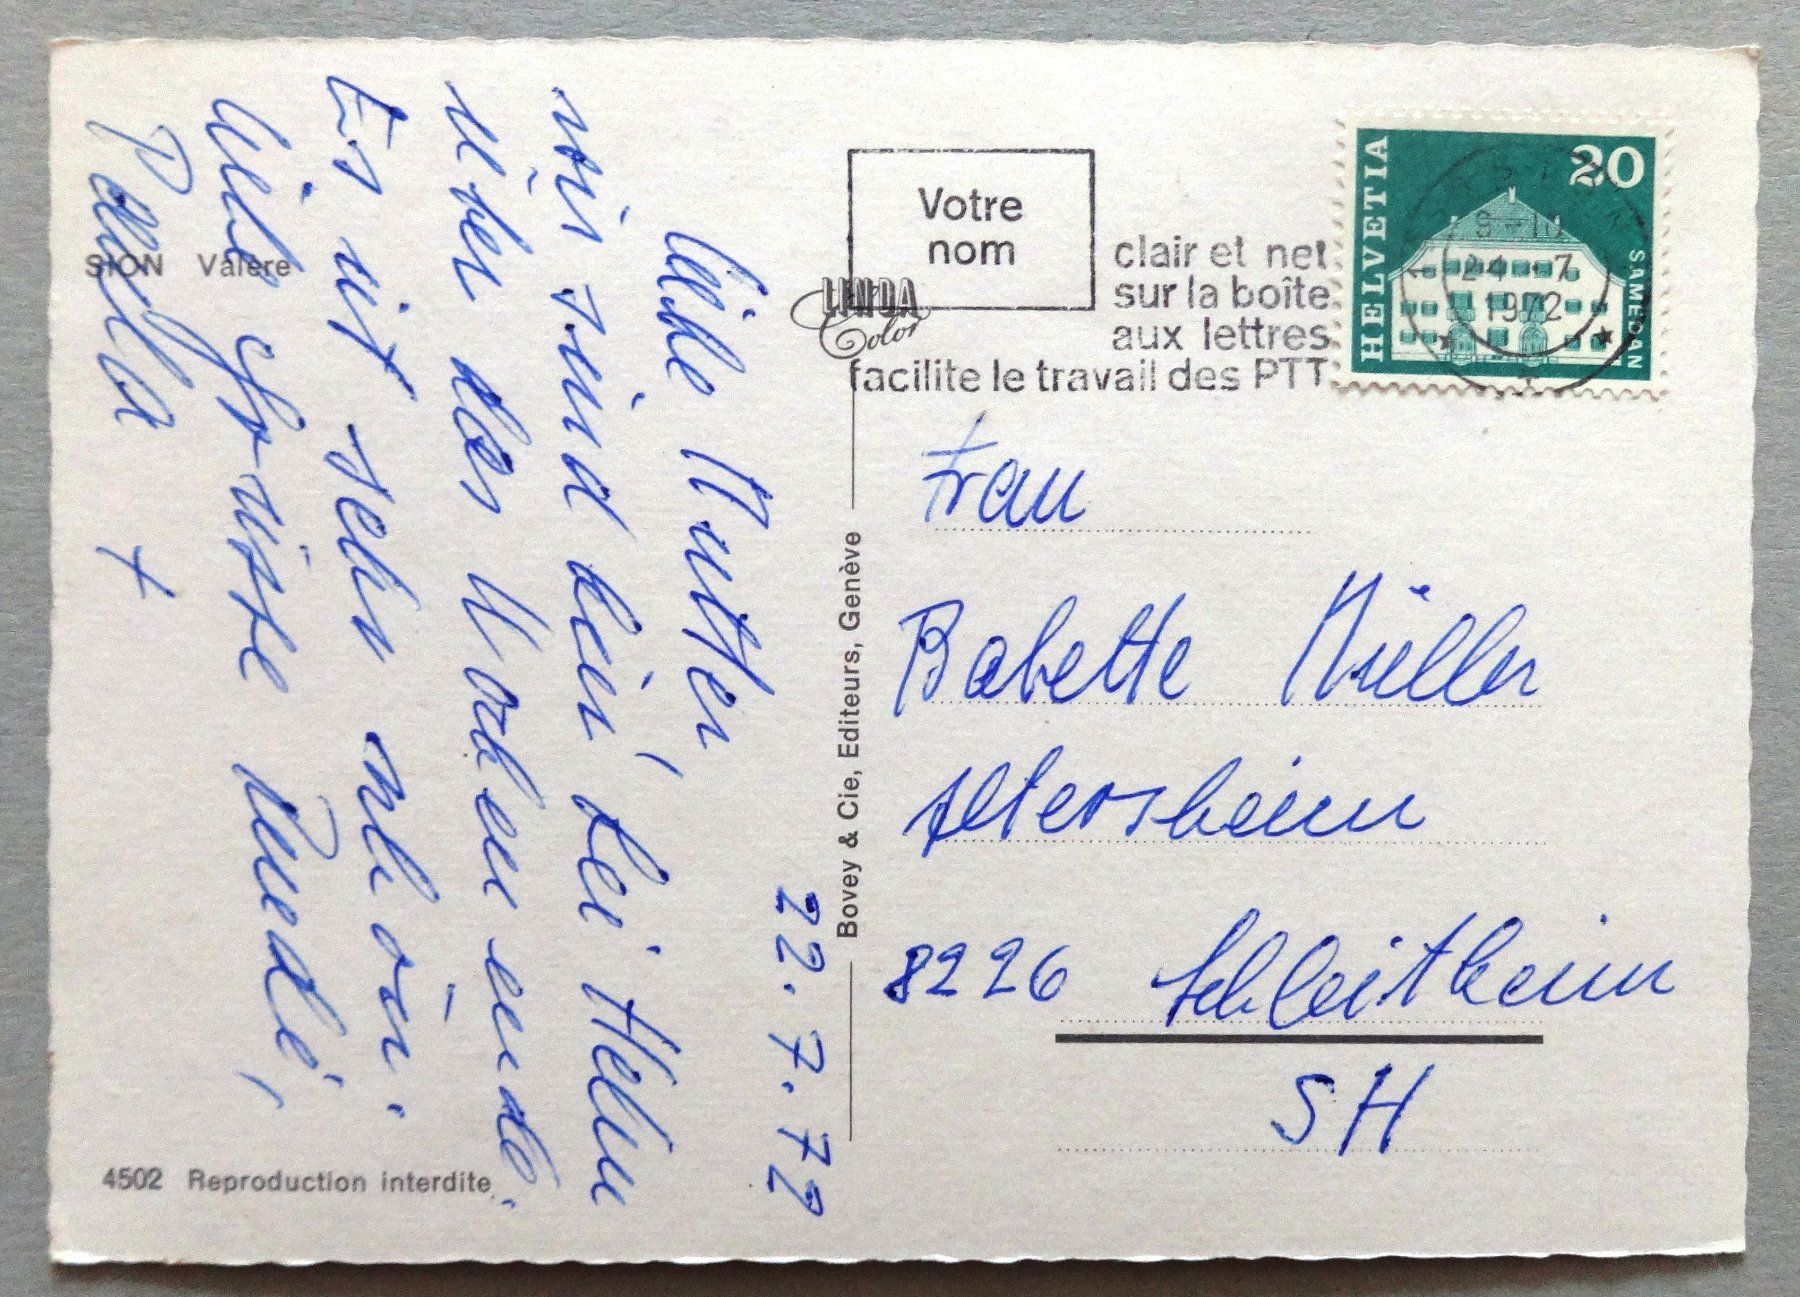 22.7.72
Liebe Mutter,
wir sind hier bei Helen
über das Wochenende.
Es ist sehr schön.
Viele Grüsse Ruedi,
Paula +
SION Valère
4502 Reproduction interdite
LINDA
Color
Bovey & Cie, Editeurs, Genève
Votre
nom
clair et net
sur la boîte
aux lettres
facilite le travail des PTT
HELVETIA
20
SAMEDAN
24 - 7
1972
Frau
Babette Müller
Altersheim
8226 Schleitheim
SH